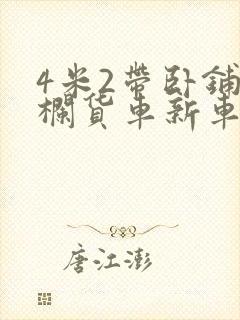 4米2带卧铺
栏货车新车
唐江澎